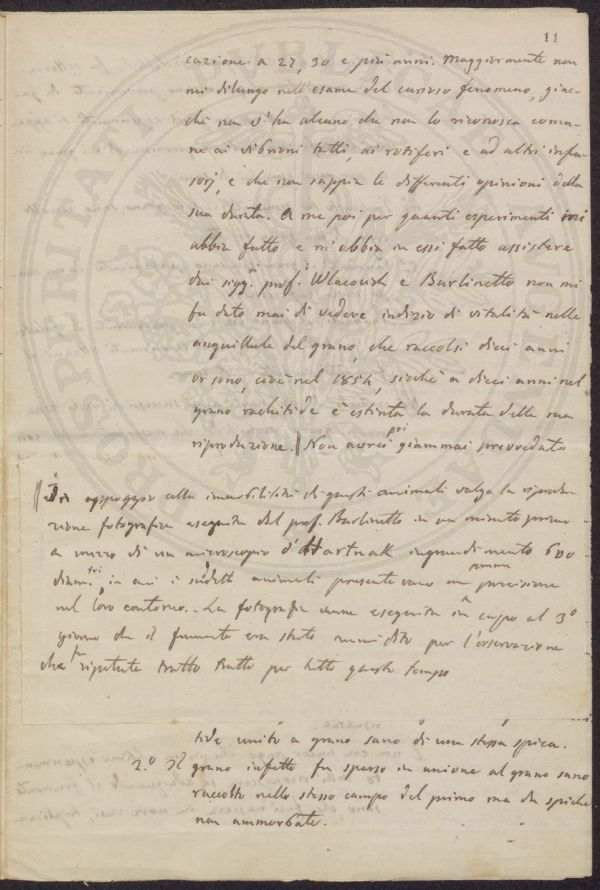 11
cazione a 27, 30 e più anni. Maggiormente non
mi dilungo nell'esame del curioso fenomeno, giac-
chè non v'ha alcuno che non lo riconosca comu-
ne ai vibrioni tutti, ai rotiferi e ad altri infu-
sorj, e che non sappia le differenti opinioni della
sua durata. A me poi per quanti esperimenti
abbia fatto e m'abbia in essi fatto assistere
dai sigg.ri prof.i Wlacovich e Burlinetto non mi
fu dato mai di vedere indizio di vitalità nelle
anguillule del grano, che raccolsi dieci anni
or sono, cioè nel 1854, sicchè a dieci anni nel
grano rachitide è estinta la durata della sua
riproduzione. Non avrei poi giammai preveduto
In appoggio alla immobilità di questi animali valga la riprodu-
zione fotografica eseguita dal prof. Burlinetto in un minuto primo
a mezzo di un microscopio d'Hartnak ingrandimento 600
diam.tri, in cui i suddetti animali presentavano una somma precisione
nel loro contorno. La fotografia venne eseguita in campo al 3.o
giorno che il frumento era stato inumidito per l'osservazione
che fu ripetuta tratto tratto per tutto questo tempo
tide unito a grano sano di una stessa spica.
2.o Il grano infetto fu sparso in unione al grano sano
raccolto nello stesso campo del primo ma da spiche
non ammorbate.